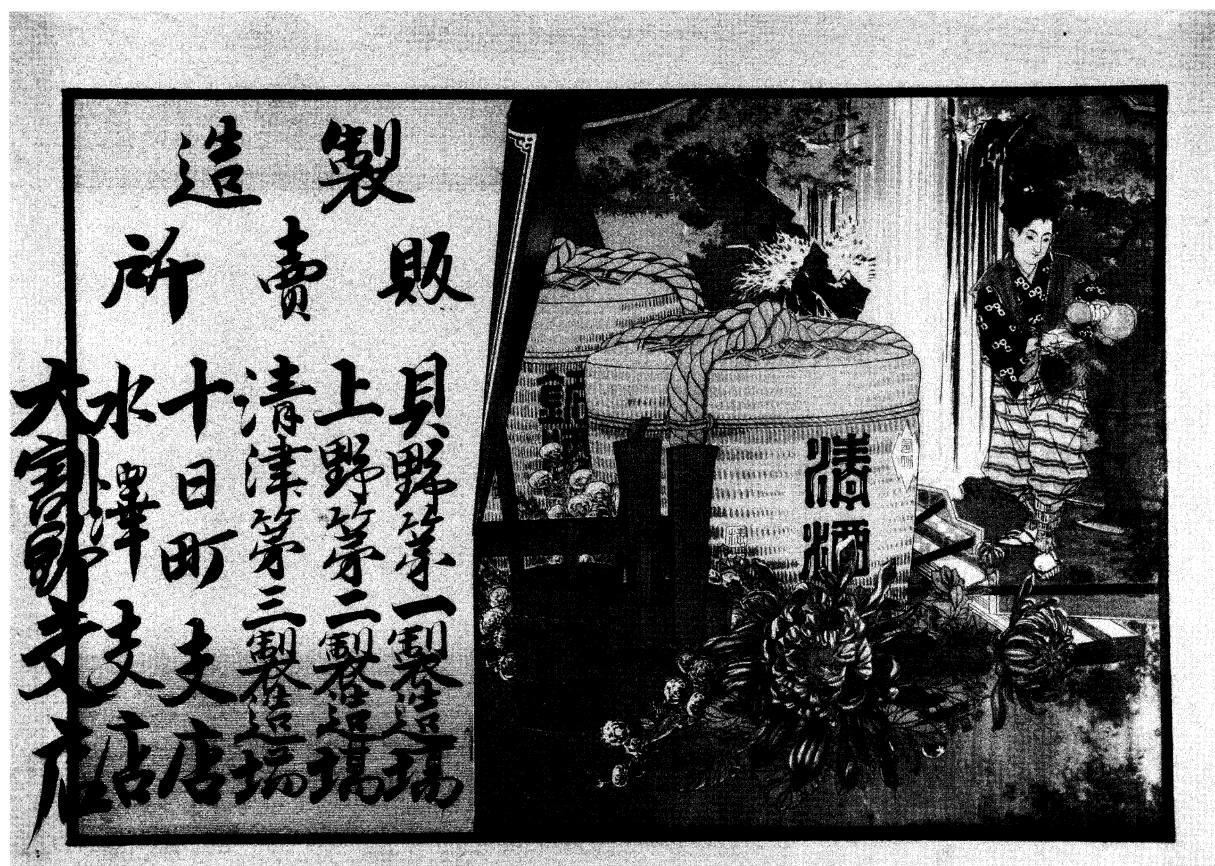 製造
販賣所
貝野第一製造場
上野第二製造場
清津第三製造場
十日町支店
水澤支店
大割野支店
清酒